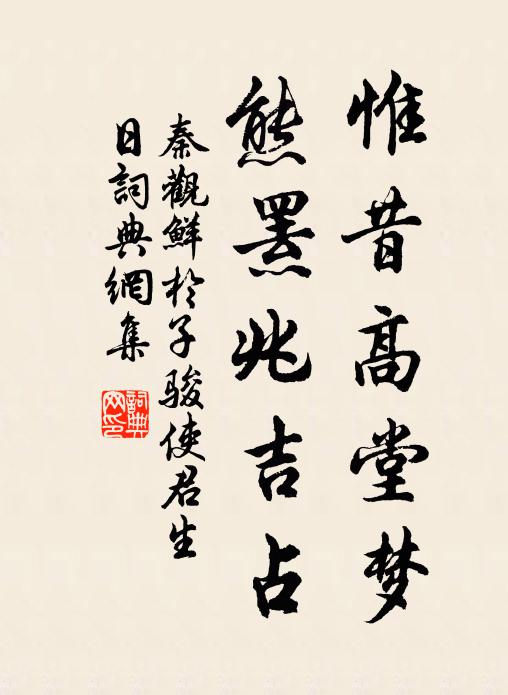 惟昔高堂梦
熊罴兆吉占
秦觀鮮於子駿使君生
日詞典網集
詞典
网印